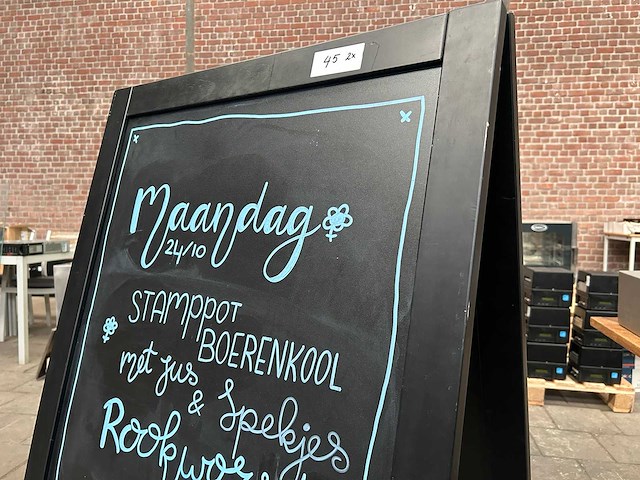 45 2x
Maandag
24/10
STAMPPOT
BOERENKOOL
met jus
& Spekjes